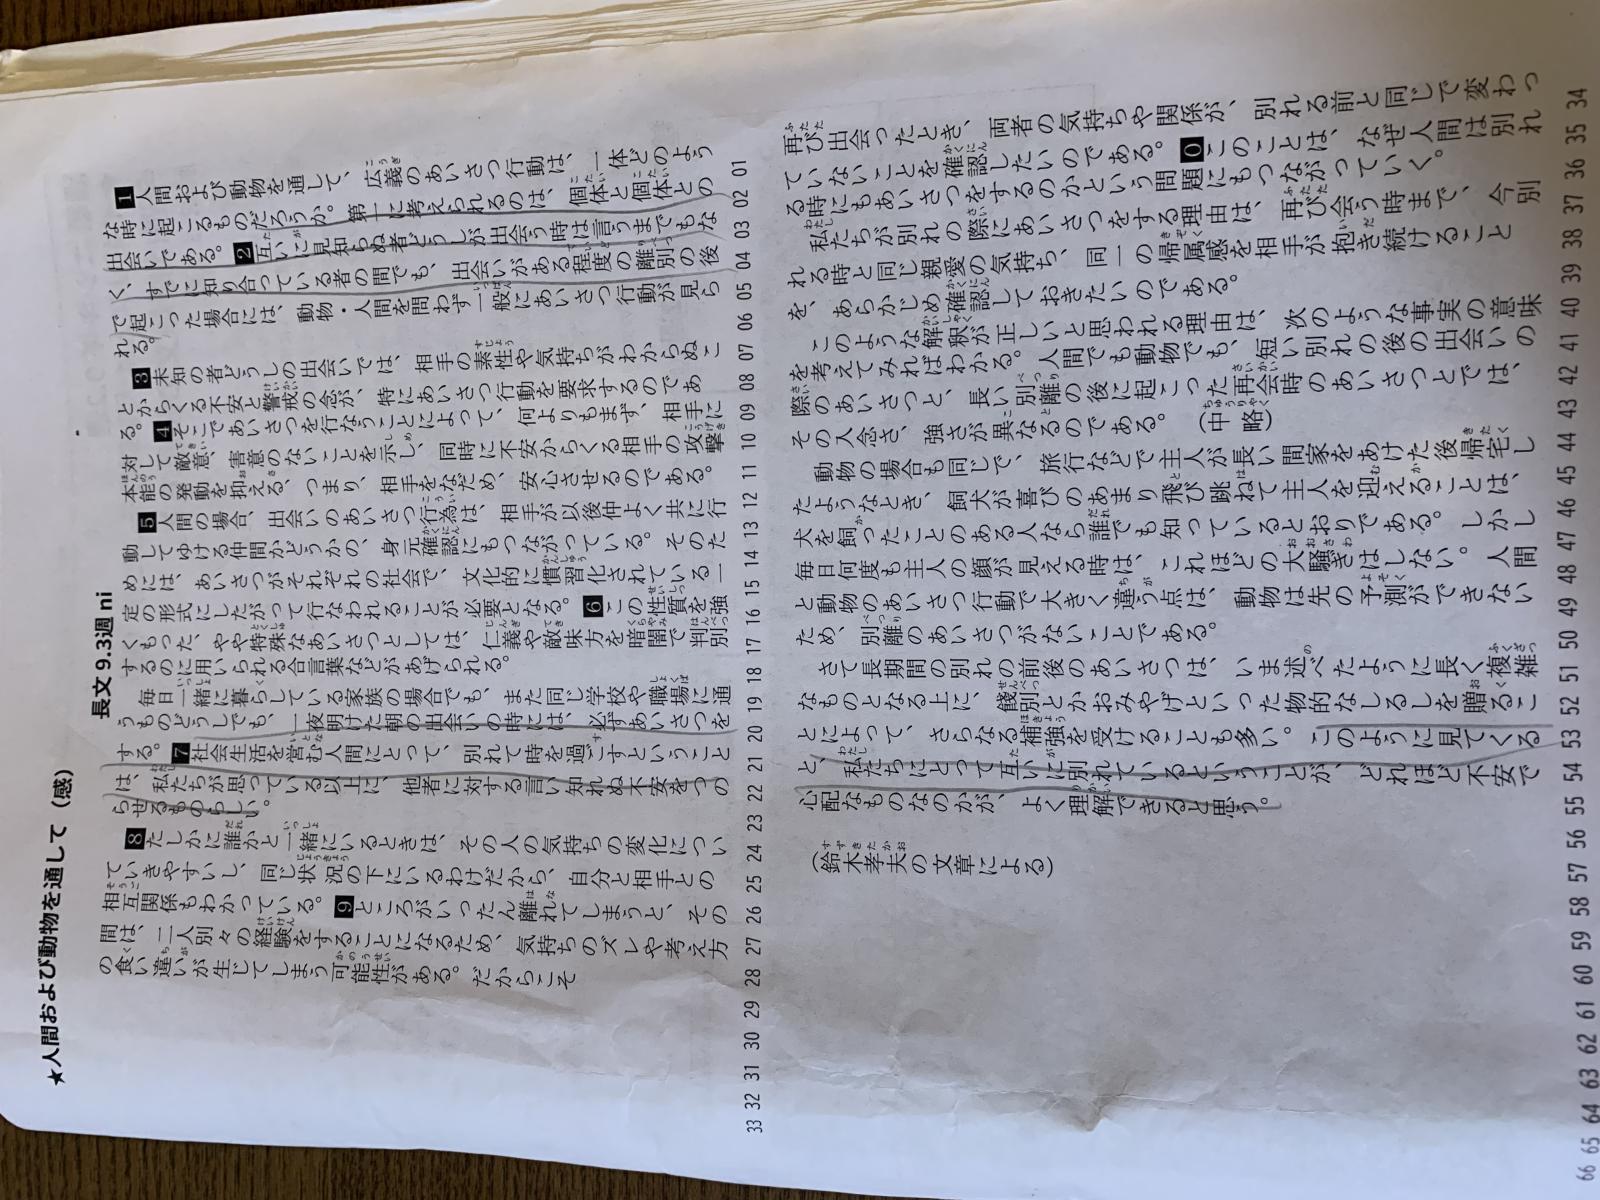 ★人間および動物を通して（感）
長文 9.3週 ni
1人間および動物を通して、広義のあいさつ行動は、一体どのよう
な時に起こるものだろうか。第一に考えられるのは、個体と個体との
出会いである。2互いに見知らぬ者どうしが出会う時は言うまでもな
く、すでに知り合っている者の間でも、出会いがある程度の離別の後
で起こった場合には、動物・人間を問わず一般にあいさつ行動が見ら
れる。
3未知の者どうしの出会いでは、相手の素性や気持ちがわからぬこ
とからくる不安と警戒の念が、特にあいさつ行動を要求するのであ
る。4そこであいさつを行なうことによって、何よりもまず、相手に
対して敵意、害意のないことを示し、同時に不安からくる相手の攻撃
本能の発動を抑える、つまり、相手をなだめ、安心させるのである。
5人間の場合、出会いのあいさつ行為は、相手が以後仲よく共に行
動してゆける仲間かどうかの、身元確認にもつながっている。そのた
めには、あいさつがそれぞれの社会で、文化的に慣習化されている一
定の形式にしたがって行なわれることが必要となる。6この性質を強
くもった、やや特殊なあいさつとしては、仁義や敵味方を暗闇で判別
するのに用いられる合言葉などがあげられる。
毎日一緒に暮らしている家族の場合でも、また同じ学校や職場に通
うものどうしでも、一夜明けた朝の出会いの時には、必ずあいさつを
する。7社会生活を営む人間にとって、別れて時を過ごすということ
は、私たちが思っている以上に、他者に対する言い知れぬ不安をつの
らせるものらしい。
8たしかに誰かと一緒にいるときは、その人の気持ちの変化につい
ていきやすいし、同じ状況の下にいるわけだから、自分と相手との
相互関係もわかっている。9ところがいったん離れてしまうと、その
間は、二人別々の経験をすることになるため、気持ちのズレや考え方
の食い違いが生じてしまう可能性がある。だからこそ
01 02 03 04 05 06 07 08 09 10 11 12 13 14 15 16 17 18 19 20 21 22 23 24 25 26 27 28 29 30 31 32 33
再び出会ったとき、両者の気持ちや関係が、別れる前と同じで変わっ
ていないことを確認したいのである。0このことは、なぜ人間は別れ
る時にもあいさつをするのかという問題にもつながっていく。
私たちが別れの際にあいさつをする理由は、再び会う時まで、今別
れる時と同じ親愛の気持ち、同一の帰属感を相手が抱き続けること
を、あらかじめ確認しておきたいのである。
このような解釈が正しいと思われる理由は、次のような事実の意味
を考えてみればわかる。人間でも動物でも、短い別れの後の出会いの
際のあいさつと、長い別離の後に起こった再会時のあいさつとでは、
その入念さ、強さが異なるのである。（中略）
動物の場合も同じで、旅行などで主人が長い間家をあけた後帰宅し
たようなとき、飼犬が喜びのあまり飛び跳ねて主人を迎えることは、
犬を飼ったことのある人なら誰でも知っているとおりである。しかし
毎日何度も主人の顔が見える時は、これほどの大騒ぎはしない。人間
と動物のあいさつ行動で大きく違う点は、動物は先の予測ができない
ため、別離のあいさつがないことである。
さて長期間の別れの前後のあいさつは、いま述べたように長く複雑
なものとなる上に、餞別とかおみやげといった物的なしるしを贈るこ
とによって、さらなる補強を受けることも多い。このように見てくる
と、私たちにとって互いに別れているということが、どれほど不安で
心配なものなのかが、よく理解できると思う。
（鈴木孝夫の文章による）
34 35 36 37 38 39 40 41 42 43 44 45 46 47 48 49 50 51 52 53 54 55 56 57 58 59 60 61 62 63 64 65 66